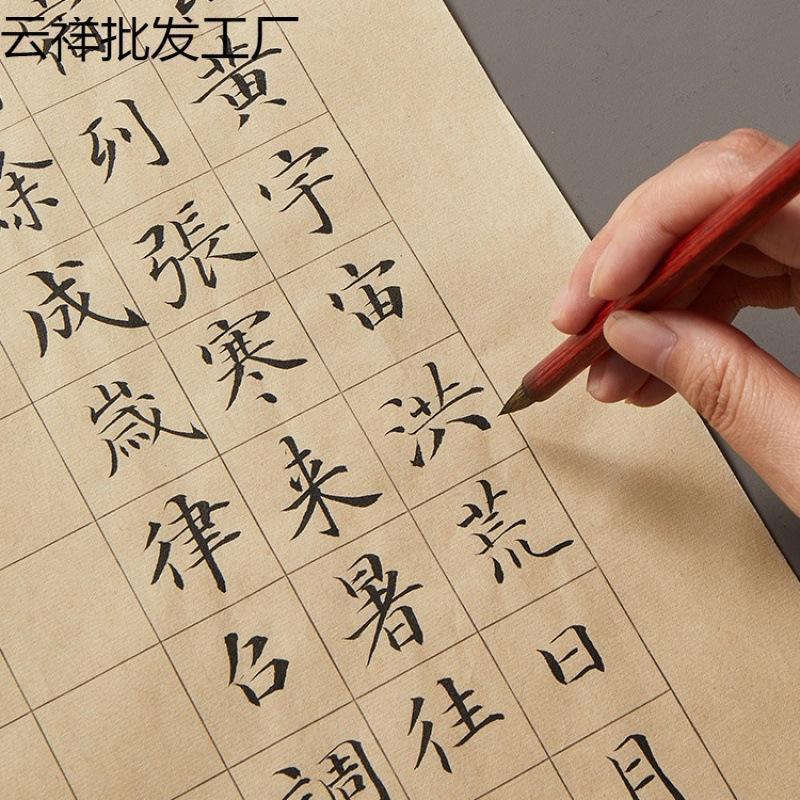 云祥批发工厂
黄宇宙洪荒日月
列張寒来暑往
成歲律召調